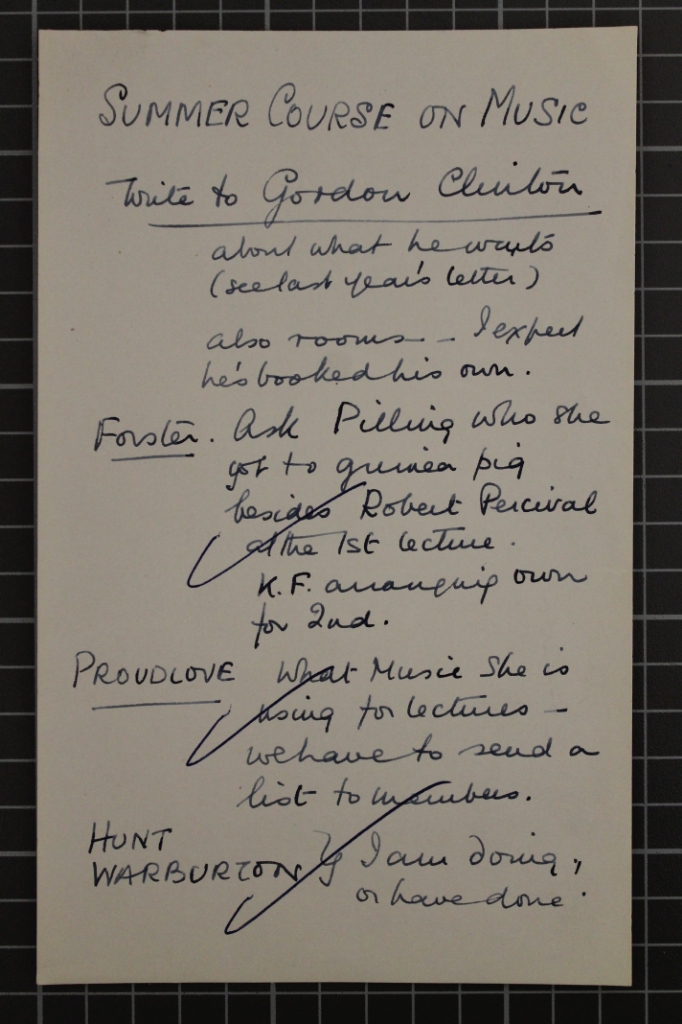 SUMMER COURSE ON MUSIC
Write to Gordon Clinton
about what he wants
(see last year's letter)
also rooms - I expect
he's booked his own.
Forster. Ask Pilling who she
got to guinea pig
besides Robert Percival
at the 1st lecture.
K.F. arranging own
for 2nd.
PROUDLOVE What Music She is
using for lectures -
we have to send a
list to members.
HUNT
WARBURTON } I am doing,
or have done.